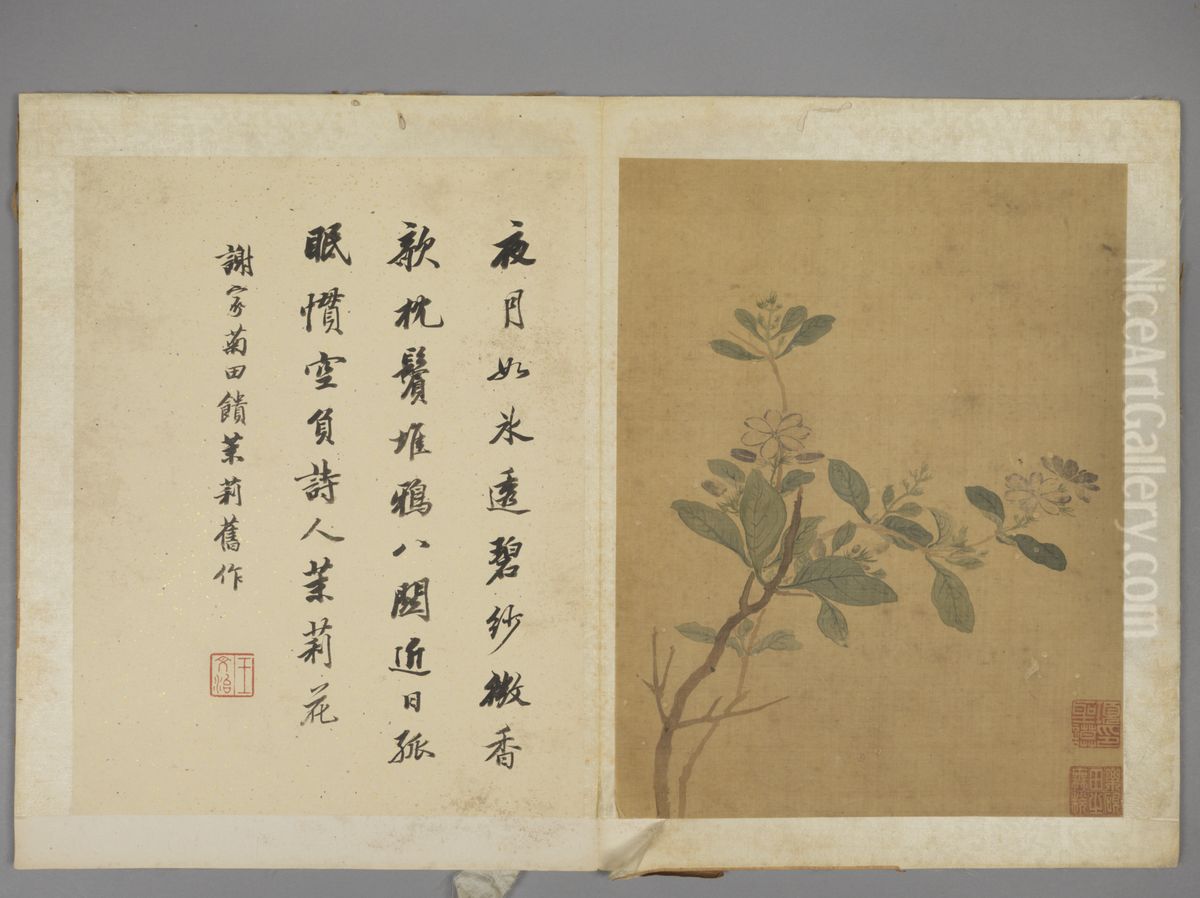 夜月如冰透碧紗微香
欹枕鬢堆鴉八關近日孤
眠慣空負詩人茉莉花
謝家菊田饋茉莉舊作
王文治
NiceArtGallery.com